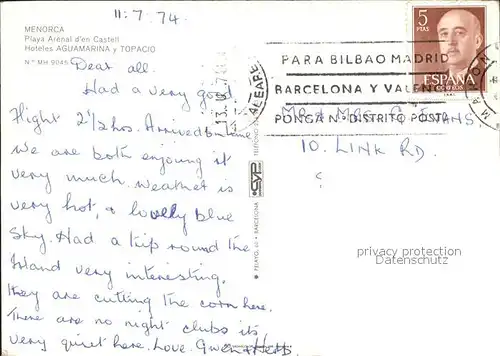 11.7.74.
MENORCA
Playa Arenal d'en Castell
Hoteles AGUAMARINA y TOPACIO
N.º MH 9045
Dear all.
Had a very good
flight 2½ hrs. Arrived on time
We are both enjoying it
very much. Weather is
very hot, & lovely blue
sky. Had a trip round the
Island very interesting.
They are cutting the corn here.
There are no night clubs its
very quiet here. Love. Gwen & Herb.
PELAYO, BARCELONA
5
PTAS
ESPAÑA
CORREOS
PARA BILBAO MADRID
BARCELONA Y VALEN
PONGA N.º DISTRITO POSTAL
MAHON
BALEARES
MR & MRS C. EVANS
10. LINK RD.
privacy protection
Datenschutz